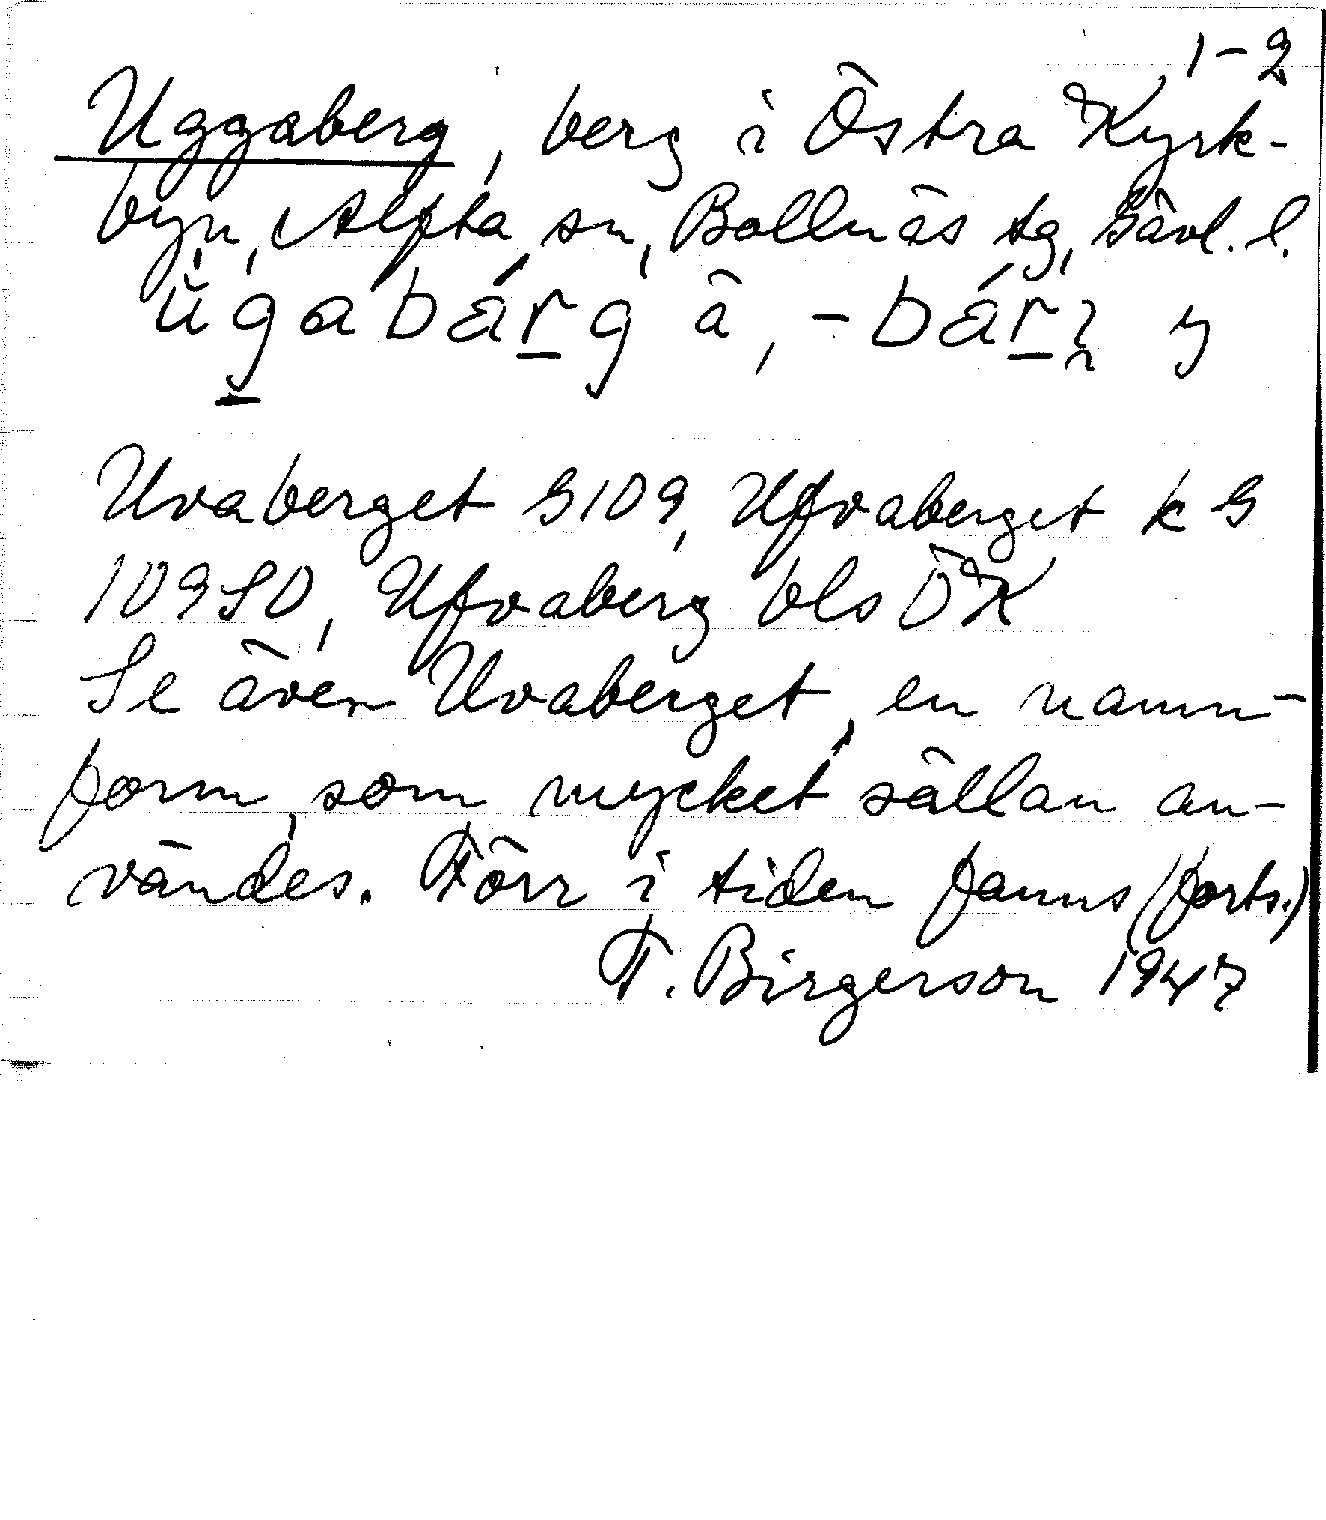 1-2
Uggaberg, berg i Östra Kyrk-
byn, Alfta sn, Bollnäs tg, Gävl. l.
Uvaberget G109, Ufvaberget k G
109SO, Ufvaberg bls ÖK
Se även Uvaberget, en namn-
form, som mycket sällan an-
vändes. Förr i tiden fanns (forts.)
F. Birgerson 1947